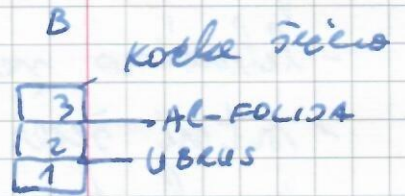 B
kocka šećera
3
AL-FOLIJA
2
UBRUS
1